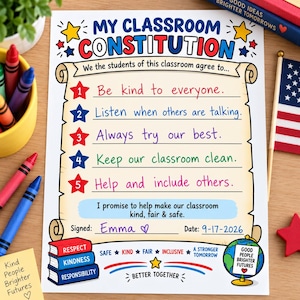 GOOD IDEAS
BRIGHTER TOMORROWS
MY CLASSROOM
CONSTITUTION
We the students of this classroom agree to...
1 Be kind to everyone.
2 Listen when others are talking.
3 Always try our best.
4 Keep our classroom clean.
5 Help and include others.
I promise to help make our classroom
kind, fair & safe.
Signed: Emma Date: 9-17-2026
RESPECT
KINDNESS
RESPONSIBILITY
SAFE KIND FAIR INCLUSIVE A STRONGER
TOMORROW
BETTER TOGETHER
GOOD
PEOPLE
BRIGHTER
FUTURES
Kind
People
Brighter
Futures